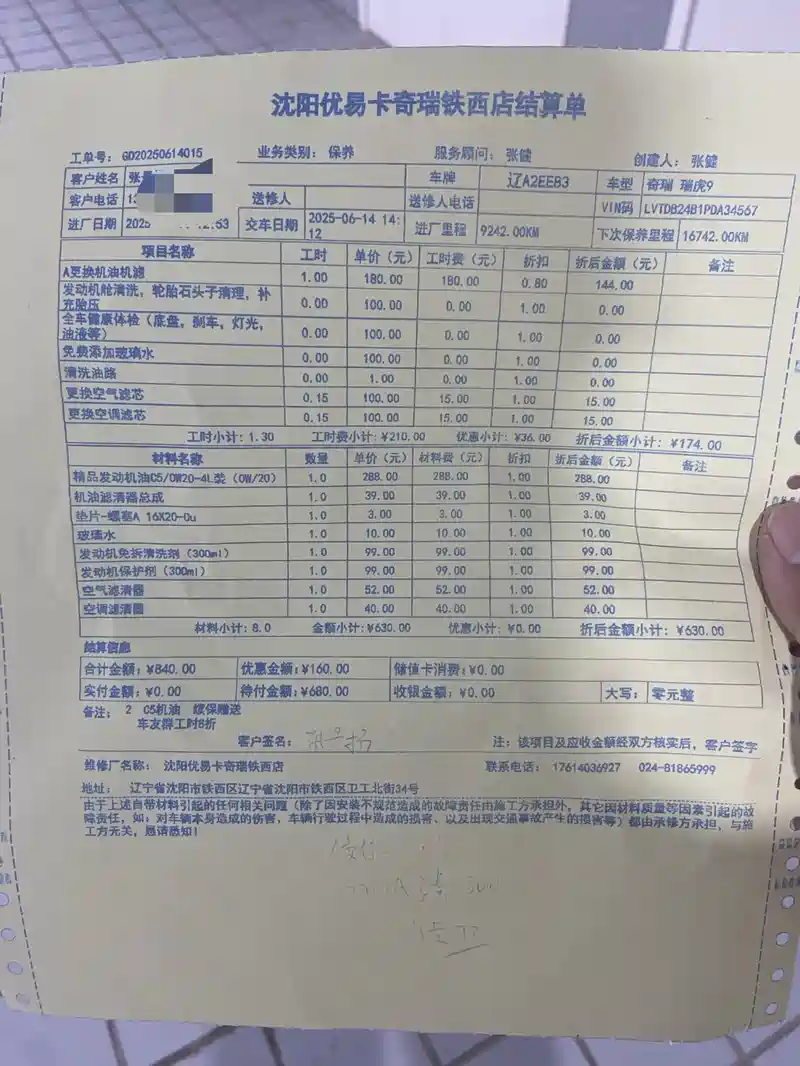 沈阳优易卡奇瑞铁西店结算单
工单号: GD20250614015 业务类别: 保养 服务顾问: 张健 创建人: 张健
客户姓名 张 车牌 辽A2EE83 车型 奇瑞 瑞虎9
客户电话 送修人 送修人电话 VIN码 LVTDB24B1PDA34567
进厂日期 2025 交车日期 2025-06-14 14:12 进厂里程 9242.00KM 下次保养里程 16742.00KM
项目名称 工时 单价（元） 工时费（元） 折扣 折后金额（元） 备注
A更换机油机滤 1.00 180.00 180.00 0.80 144.00
发动机舱清洗, 轮胎石头子清理, 补充胎压 0.00 100.00 0.00 1.00 0.00
全车健康体检（底盘, 刹车, 灯光, 油液等） 0.00 100.00 0.00 1.00 0.00
免费添加玻璃水 0.00 100.00 0.00 1.00 0.00
清洗油路 0.00 1.00 0.00 1.00 0.00
更换空气滤芯 0.15 100.00 15.00 1.00 15.00
更换空调滤芯 0.15 100.00 15.00 1.00 15.00
工时小计: 1.30 工时费小计: ¥210.00 优惠小计: ¥36.00 折后金额小计: ¥174.00
材料名称 数量 单价（元） 材料费（元） 折扣 折后金额（元） 备注
精品发动机油C5/0W20-4L装（0W/20） 1.0 288.00 288.00 1.00 288.00
机油滤清器总成 1.0 39.00 39.00 1.00 39.00
垫片-螺塞A 16X20-Cu 1.0 3.00 3.00 1.00 3.00
玻璃水 1.0 10.00 10.00 1.00 10.00
发动机免拆清洗剂（300ml） 1.0 99.00 99.00 1.00 99.00
发动机保护剂（300ml） 1.0 99.00 99.00 1.00 99.00
空气滤清器 1.0 52.00 52.00 1.00 52.00
空调滤清器 1.0 40.00 40.00 1.00 40.00
材料小计: 8.0 金额小计: ¥630.00 优惠小计: ¥0.00 折后金额小计: ¥630.00
结算信息
合计金额: ¥840.00 优惠金额: ¥160.00 储值卡消费: ¥0.00
实付金额: ¥0.00 待付金额: ¥680.00 收银金额: ¥0.00 大写: 零元整
备注: 2 C5机油 续保赠送
车友群工时8折
客户签名: 注: 该项目及应收金额经双方核实后, 客户签字
维修厂名称: 沈阳优易卡奇瑞铁西店 联系电话: 17614036927 024-81865999
地址: 辽宁省沈阳市铁西区辽宁省沈阳市铁西区卫工北街34号
由于上述自带材料引起的任何相关问题（除了因安装不规范造成的故障责任由施工方承担外, 其它因材料质量等因素引起的故
障责任, 如: 对车辆本身造成的伤害, 车辆行驶过程中造成的损害、以及出现交通事故产生的损害等）都由承修方承担, 与施
工方无关, 恳请悉知!